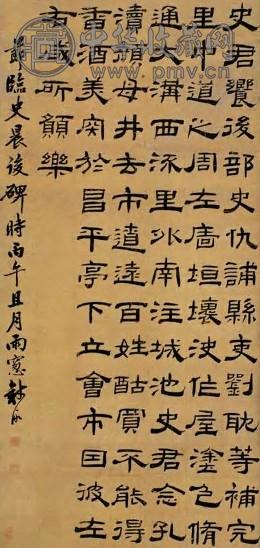 中华收藏网
www.pmv.cn
史君饗後部史仇誧縣吏劉耽等補完
里中道之周左廧垣壞決作屋塗色脩
通大溝西流里外南注城池史君念孔
瀆顏母井去市遼遠百姓酤買不能得
香酒美肉於昌平亭下立會市因彼左
右咸所願樂
節臨史晨後碑時丙午且月雨窓錢泳